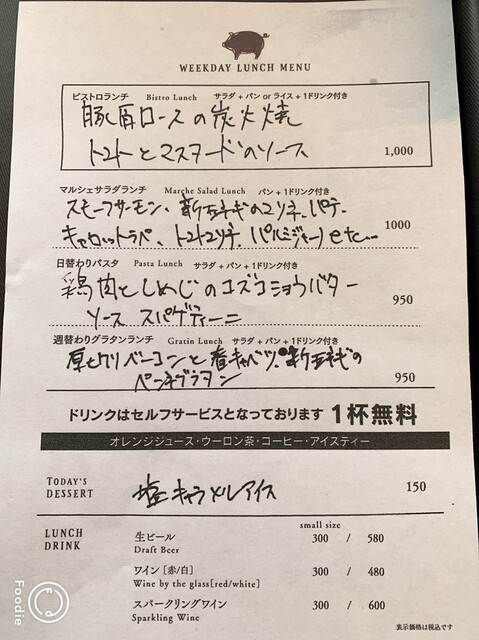 WEEKDAY LUNCH MENU
ビストロランチ Bistro Lunch サラダ + パン or ライス + 1ドリンク付き
豚肩ロースの炭火焼
トマトとマスタードのソース 1,000
マルシェサラダランチ Marche Salad Lunch パン + 1ドリンク付き
スモークサーモン、新玉ネギのマリネ、パテ、 1000
キャロットラペ、トマトマリネ、パルミジャーノetc...
日替わりパスタ Pasta Lunch サラダ + パン + 1ドリンク付き
鶏肉としめじのユズコショウバター 950
ソース スパゲティーニ
週替わりグラタンランチ Gratin Lunch サラダ + パン + 1ドリンク付き
厚切りベーコンと春キャベツ、新玉ネギの
ペンネグラタン 950
ドリンクはセルフサービスとなっております 1杯無料
オレンジジュース・ウーロン茶・コーヒー・アイスティー
TODAY'S DESSERT 塩キャラメルアイス 150
LUNCH DRINK
small size
生ビール 300 / 580
Draft Beer
ワイン [赤/白] 300 / 480
Wine by the glass[red/white]
スパークリングワイン 300 / 600
Sparkling Wine
表示価格は税込です
Foodie